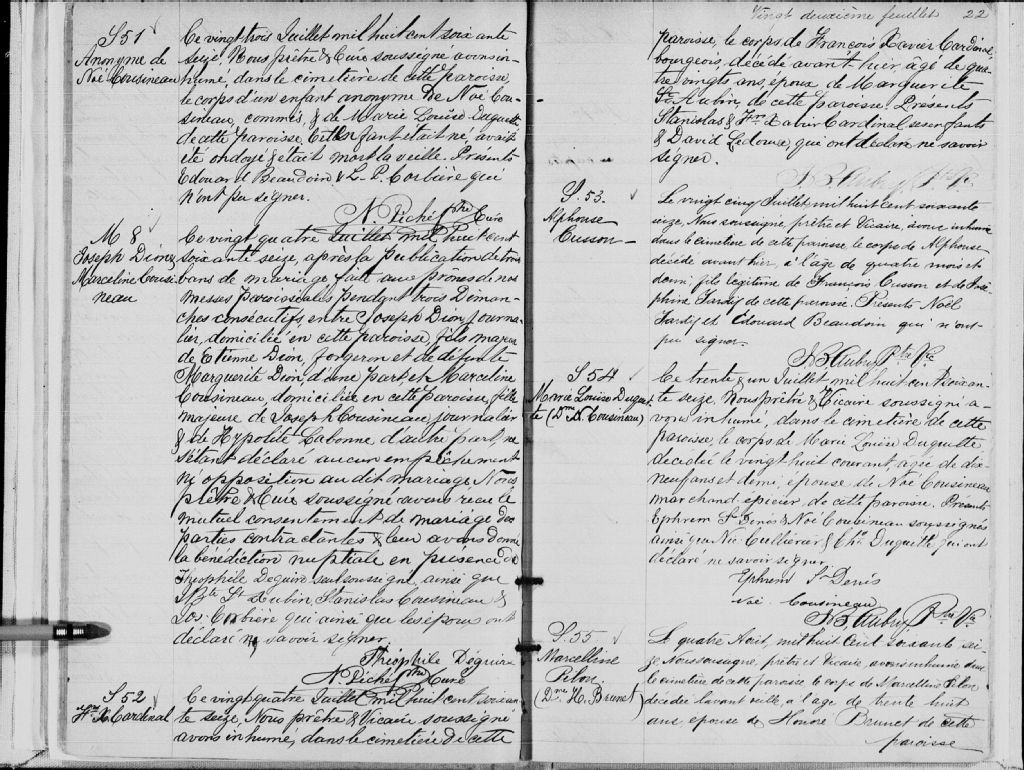 S 51
Anonyme de
Noé Cousineau
Ce vingt trois Juillet mil huit cent soixante
seize, Nous prêtre & Curé soussigné avons in-
humé, dans le cimetière de cette paroisse,
le corps d'un enfant anonyme De Noé Cou-
sineau, commis, & de Marie Louise Duquette
de cette paroisse. Cet enfant était né, avait
été ondoyé & était mort la veille. Présents
Edouard Beaudoin & L. P. Corbière qui
n'ont pu signer.
N. Piché Ptre Curé
M 8
Joseph Dion &
Marceline Cousi
neau
Ce vingt quatre Juillet mil huit cent
soixante seize, après la publication de trois
bans de mariage fait aux prônes de nos
messes paroissiales pendant trois Diman-
ches consécutifs, entre Joseph Dion, journa-
lier, domicilié en cette paroisse, fils majeur
de Etienne Dion, forgeron et de défunte
Marguerite Dion, d'une part, et Marceline
Cousineau, domiciliée en cette paroisse, fille
majeure de Joseph Cousineau, journalier
& de Hypolite Labonne d'autre part, ne
s'étant déclaré aucun empêchement
ni opposition au dit mariage Nous
prêtre & Curé soussigné avons reçu le
mutuel consentement de mariage des
parties contractantes & leur avons donné
la bénédiction nuptiale en présence de
Théophile Deguire soussigné, ainsi que
J. Bte St Aubin, Stanislas Cousineau &
Corbière qui ainsi que les époux ont
déclaré ne savoir signer.
Théophile Déguire
N. Piché Ptre Curé
S 52
Frs X. Cardinal
Ce vingt quatre Juillet mil huit cent soixan
te seize, Nous Prêtre & Vicaire soussigné
avons inhumé, dans le cimetière de cette
Vingt deuxième feuillet 22
paroisse, le corps de François Xavier Cardinal
bourgeois, décédé avant hier, âgé de qua
tre vingts ans, époux de Marguerite
St Aubin, de cette paroisse. Présents
Stanislas & Frs Xavier Cardinal ses enfants
& David Ledoux, qui ont déclaré ne savoir
signer.
J. B. Aubry Ptre Vic
S. 53.
Alphonse
Cusson
Le vingt cinq Juillet mil huit cent soixante
seize, Nous soussigné, prêtre et Vicaire, avons inhumé
dans le cimetière de cette paroisse, le corps de Alphonse
décédé avant hier, à l'âge de quatre mois et
demi, fils légitime de François Cusson et de José-
phine Tardif de cette paroisse. Présents Noël
Tardif et Edouard Beaudoin qui n'ont
pu signer.
J. B. Aubry Ptre Vic
S 54
Marie Louise Duquet
te (Dme N. Cousineau)
Ce trente & un Juillet mil huit cent soixan-
te seize, Nous Prêtre & Vicaire soussigné a-
vons inhumé, dans le cimetière de cette
paroisse, le corps de Marie Louise Duquette
décédée le vingt huit courant, âgée de dix
neuf ans et demi, épouse de Noé Cousineau
marchand épicier, de cette paroisse. Présents
Ephrem St Denis & Noé Cousineau soussignés
ainsi que Noé Cuillérier & Chs. Duquette, qui ont
déclaré ne savoir signer
Ephrem St Denis
Noé Cousineau
J. B. Aubry Ptre Vic
S. 55
Marcelline
Pilon
(Dme H. Brunet)
Le quatre Août, mil huit cent soixante sei-
ze Nous soussigné, prêtre et Vicaire, avons inhumé dans
le cimetière de cette paroisse le corps de Marcelline Pilon
décédée l'avant veille, à l'âge de trente huit
ans épouse de Honoré Brunet de cette
paroisse